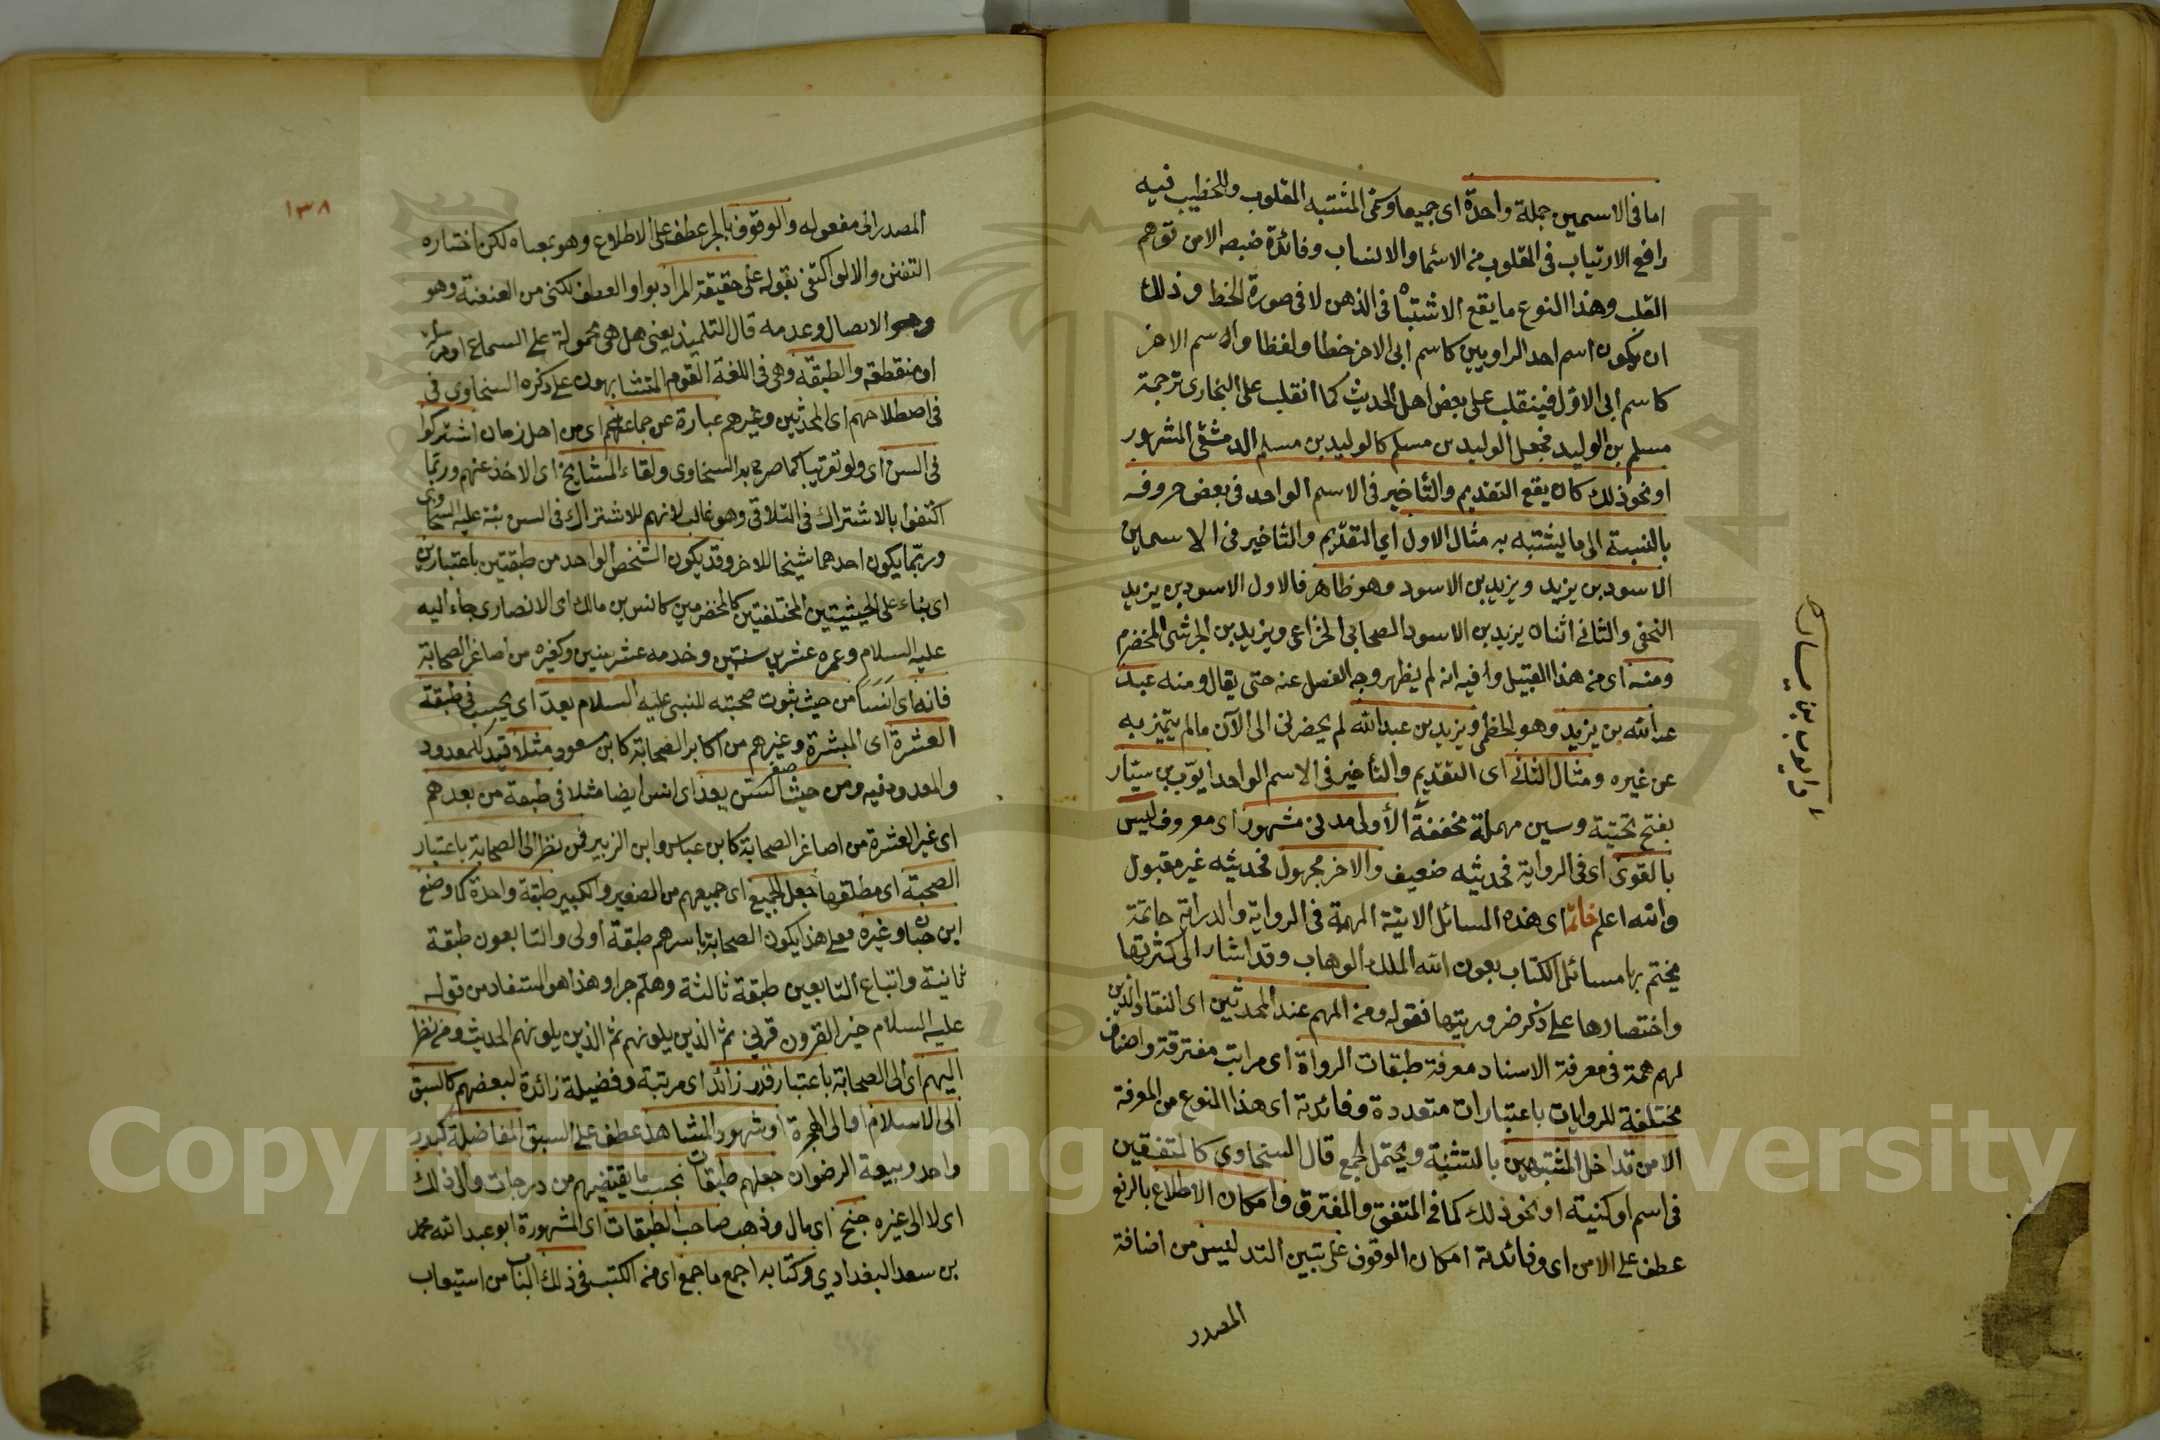 اما فى الاسمين جملة واحدة اى جميعا وسمى المشتبه المقلوب وللخطيب فيه
رافع الارتياب فى المقلوب من الاسماء والانساب وفائدة ضبطه الامن توهم
القلب وهذا النوع ما يقع الاشتباه فى الذهن لا فى صورة الخط وذلك
ان يكون اسم احد الراويين كاسم ابى الاخر خطا ولفظا والاسم الاخر
كاسم ابى الاول فينقلب على بعض اهل الحديث كما انقلب على البخارى ترجمة
مسلم بن الوليد فجعل الوليد بن مسلم كالوليد بن مسلم الدمشقى المشهور
او نحو ذلك كان يقع التقديم والتأخير فى الاسم الواحد فى بعض حروفه
بالنسبة الى ما يشتبه به مثال الاول اي التقديم والتأخير فى الاسمين
الاسود بن يزيد ويزيد بن الاسود وهو ظاهر فالاول الاسود بن يزيد
النخعى والثانى اثنان يزيد بن الاسود الصحابى الخزاعى ويزيد بن الجرشى المخضرم
ومنه اى من هذا القبيل وفيه انه لم يظهر وجه الفصل عنه حتى يقال ومنه عبد
عبدالله بن يزيد وهو الخطمى ويزيد بن عبدالله لم يحضرنى الى الآن ما لم يتميز به
عن غيره ومثال الثانى اى التقديم والتأخير فى الاسم الواحد ايوب بن سيار
بفتح تحتية وسين مهملة مخففة الأولى مدنى مشهور اى معروف ليس
بالقوى اى فى الرواية فحديثه ضعيف والاخر مجهول فحديثه غير مقبول
والله اعلم خاتمة اى هذه المسائل الاتية المهمة فى الرواية والدراية خاتمة
يختم بها مسائل الكتاب بعون الله الملك الوهاب وقد اشار الى كثرتها
واختصارها على ذكر ضروريتها فقوله ومن المهم عند المحدثين اى النقاد الذين
لهم همة فى معرفة الاسناد معرفة طبقات الرواة اى مراتب مفترقة واصناف
مختلفة للروايات باعتبارات متعددة وفائدته اى هذا النوع من المعرفة
الامن تداخل المشتبهين بالتثنية ويحتمل الجمع قال السخاوى كالمتفقين
فى اسم او كنية او نحو ذلك كما فى المتفق والمفترق وامكان الاطلاع بالرفع
عطف على الامن اى وفائدته امكان الوقوف على تبيين التدليس من اضافة
المصدر
او ايوب بن يسار
١٣٨
المصدر الى مفعوله والوقوف بالجر عطف على الاطلاع وهو بمعناه لكن اختاره
التفنن والا لو اكتفى بقوله على حقيقة المراد بواو العطف لكفى من العنعنة وهو
وهو الاتصال وعدمه قال التلميذ يعنى هل هى محمولة على السماع او مرسلة
او منقطعة والطبقة وهى فى اللغة القوم المتشابهون على ذكره السخاوى فى
فى اصطلاحهم اى المحدثين وغيرهم عبارة عن جماعتهم اى من اهل زمان اشتركوا
فى السن اى ولو تقريبا كما صرح به السخاوى ولقاء المشايخ اى الاخذ عنهم وربما
اكتفوا بالاشتراك فى التلاقى وهو غالب لانهم للاشتراك فى السن نبه عليه السخاوى
وربما يكون احدهما شيخا للاخر وقد يكون الشخص الواحد من طبقتين باعتبارين
اى بناء على الحيثيتين المختلفتين كالمخضرمين كانس بن مالك اى الانصارى جاء اليه
عليه السلام وعمره عشر سنين وخدمه عشر سنين وكغيره من اصاغر الصحابة
فانه اى انسا من حيث ثبوت صحبته للنبى عليه السلام يعد اى يحسب فى طبقة
العشرة اى المبشرة وغيرهم من اكابر الصحابة كابن مسعود مثلا قيد للمعدود
والمعدود فيه ومن حيث صغر السن يعد اى انس ايضا مثلا فى طبقة من بعدهم
اى غير العشرة من اصاغر الصحابة كابن عباس وابن الزبير فمن نظر الى الصحابة باعتبار
الصحبة اى مطلقها جعل الجميع اى جميعهم من الصغير والكبير طبقة واحدة كما وضع
ابن حبان وغيره فعلى هذا يكون الصحابة باسرهم طبقة أولى والتابعون طبقة
ثانية واتباع التابعين طبقة ثالثة وهلم جرا وهذا هو المستفاد من قوله
عليه السلام خير القرون قرنى ثم الذين يلونهم ثم الذين يلونهم الحديث ومن نظر
اليهم اى الى الصحابة باعتبار قدر زائد اى مرتبة وفضيلة زائدة لبعضهم كالسبق
الى الاسلام او الى الهجرة او شهود المشاهد عطف على السبق الفاضلة كبدر
واحد وبيعة الرضوان جعلهم طبقات بحسب ما يقتضيهم من درجات والى ذلك
اى لا الى غيره جنح اى مال وذهب صاحب الطبقات اى المشهورة ابو عبد الله محمد
بن سعد البغدادي وكتابه اجمع ما جمع اى من الكتب فى ذلك الباب من استيعاب
Copyright © King Saud University